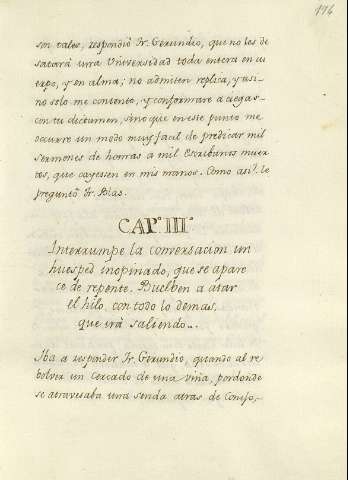 174
son tales, respondiò Fr. Gerundio, que no les de
satará una Universidad toda entera en cu
erpo, y en alma; no admiten replica, y asi
no solo me contento, y conformare a ciegas
con tu dictamen, sino que en este punto me
ocurre un modo muy facil de predicar mil
sermones de honras a mil Escribanos muer
tos, que cayesen en mis manos. Como asi?, le
preguntò Fr. Blas.
CAP.º III.º
Interrumpe la conversacion un
huesped inopinado, que se apare
ce de repente. Buelben a atar
el hilo, con todo lo demas,
que irá saliendo..
Iba a responder Fr. Gerundio, quando al re
bolver un Cercado de una viña, pordonde
se atravesaba una senda atras de Conejo,-